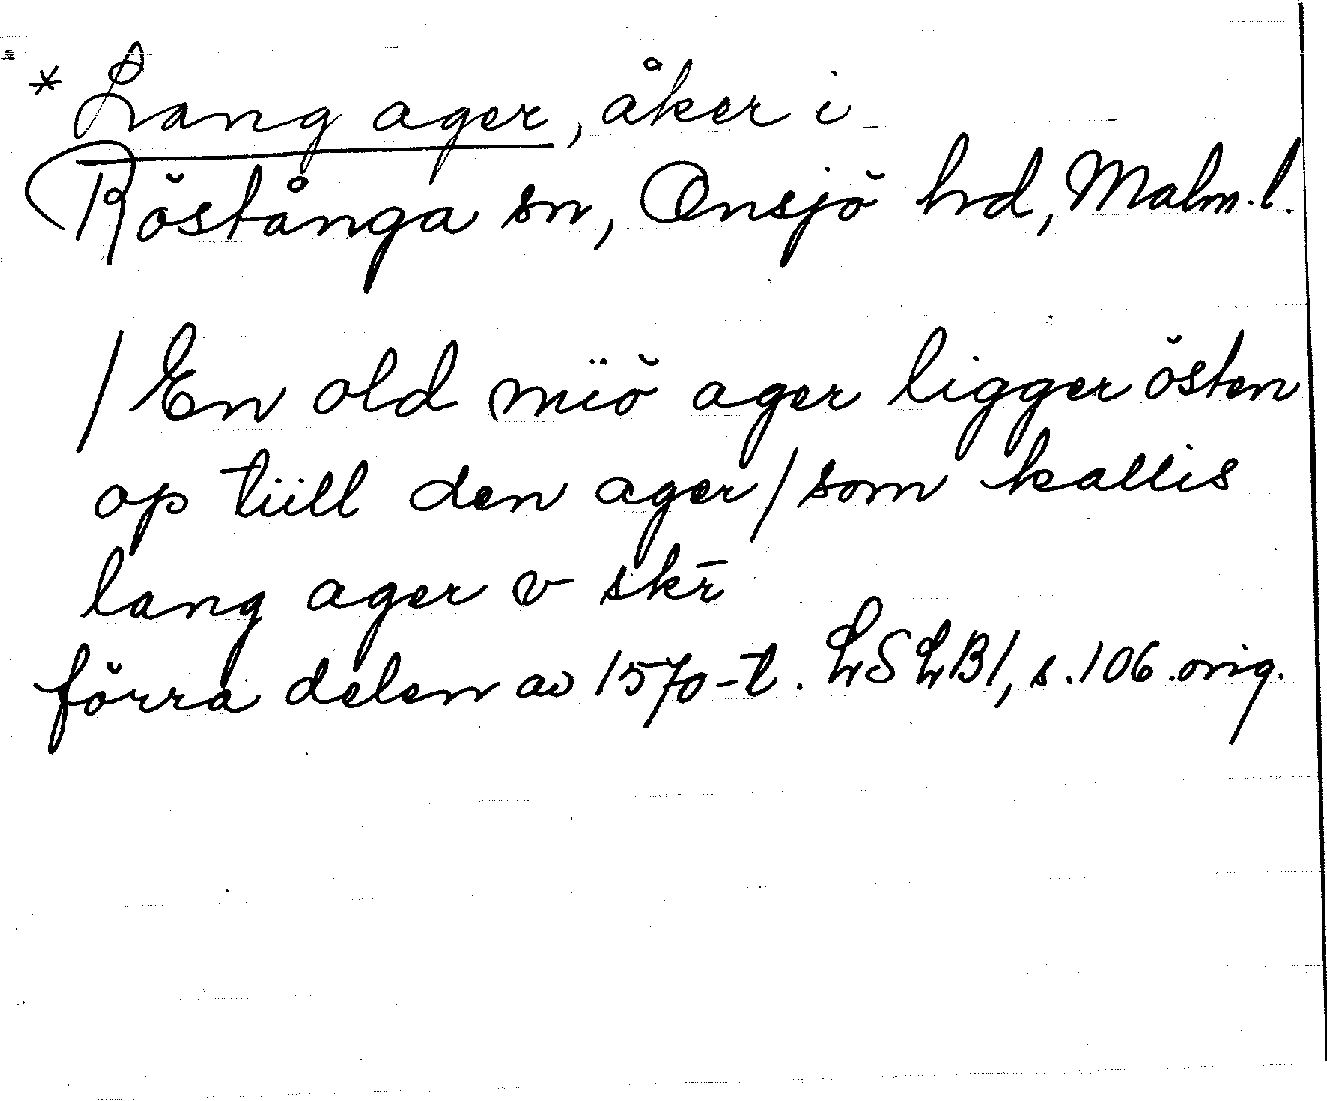 * Lang ager, åker i
Röstånga sn, Onsjö hd, Malm.l.
/ En old miö ager ligger östen
op tiill den ager / som kallis
lang ager v skr̄
förra delen av 1570-t. LSLB1, s.106.orig.